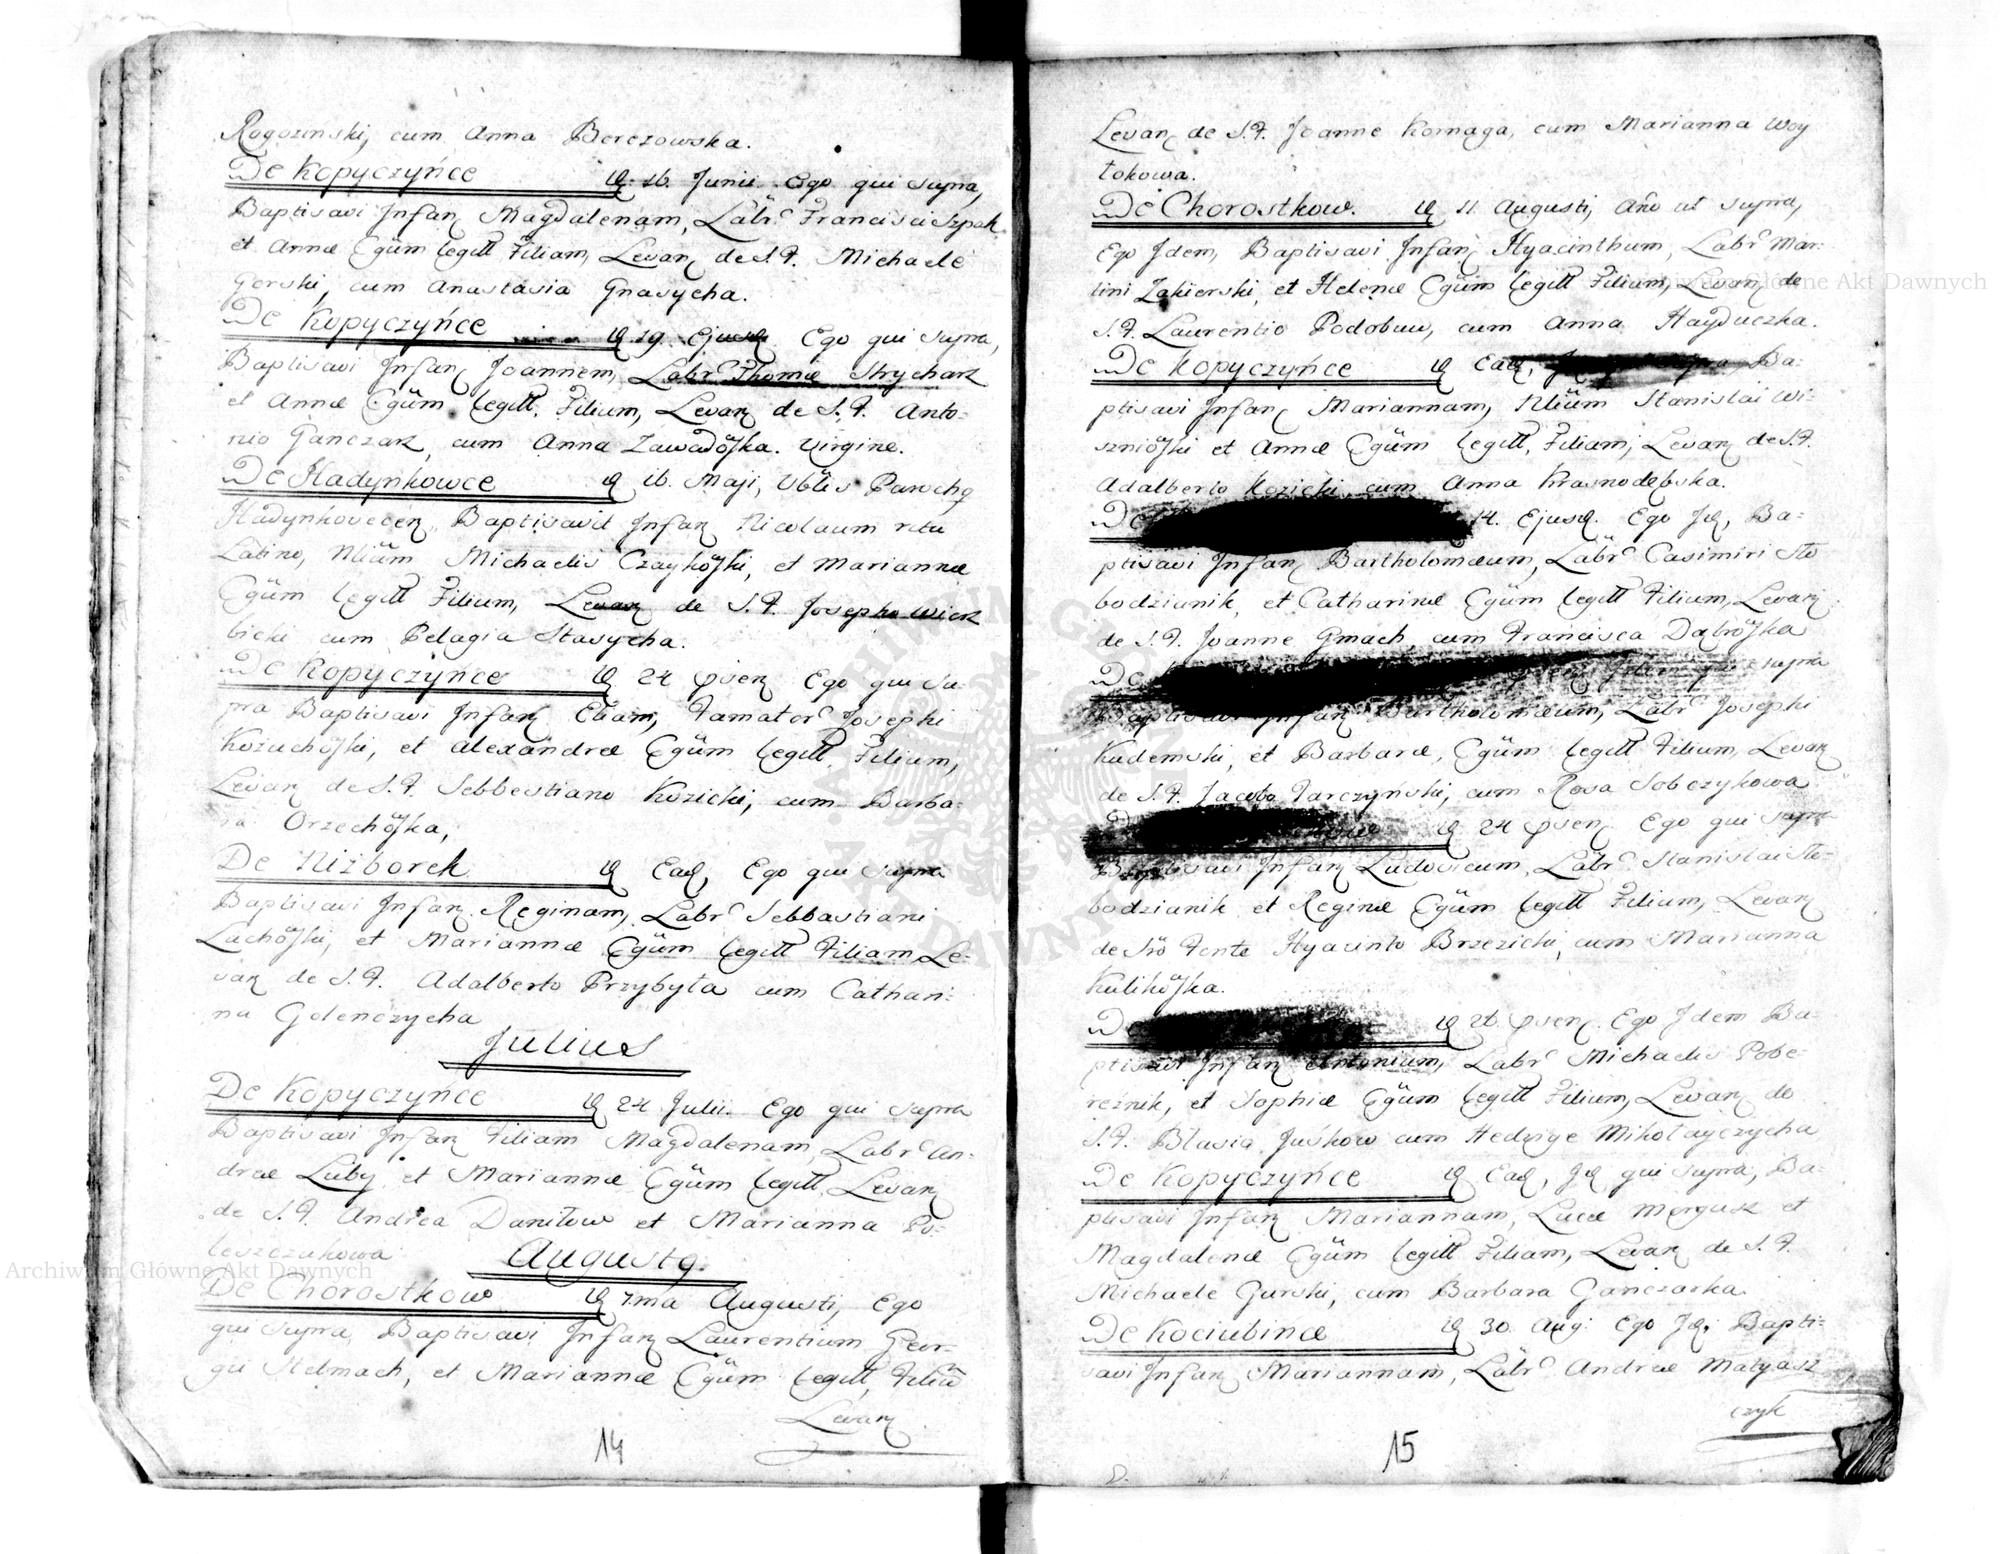 Rogozinski, cum Anna Berezowska.
De Kopyczyńce D 16. Junii. Ego qui supra,
Baptisavi Infan Magdalenam, Labr Francisci Szpak
et Annæ Cgüm legitt Filiam, Levan de S.F. Michaele
Gorski, cum Anastasia Gnasycha.
De Kopyczyńce D 19. Ejusd Ego qui supra,
Baptisavi Infan Joannem, Labr Thomæ Strycharz
et Annæ Cgüm legitt. Filium, Levan de S.F. Anto=
nio Ganczarz, cum Anna Zawadöska. Virgine.
De Hadynkowce D 16. Maji, Vbles Paroch9
Hadynkovecen Baptisavit Infan Nicolaum ritu
Latino, Nlium Michaelis Czaykösski, et Mariannæ
Cgüm legitt Filium, Levan de S.F. Josepho Wierz
bicki cum Pelagia Stasycha.
De Kopyczyńce D 24 psen Ego qui su=
pra Baptisavi Infan Eliam, Famator Josephi
Kozuchösski, et Alexandræ Cgüm legitt. Filium,
Levan de S.F. Sebbestiano Kozicki, cum Barba=
ra Orzechösska,
De Niżborek D Ead, Ego qui supra
Baptisavi Infan Reginam, Labr Sebbastiani
Lachösski, et Mariannæ Cgüm legitt Filiam Le=
van de S.F. Adalberto Przybyła cum Cathari=
na Golenczycha
Julius
De Kopyczyńce D 24 Julii. Ego qui supra
Baptisavi Infan Filiam Magdalenam, Labr An=
dræ Luby et Mariannæ Cgüm legitt, Levan
de S.F. Andrea Daniłow et Marianna Po=
leszczukowa
August9.
De Chorostkow D 7ma Augusti, Ego
qui supra, Baptisavi Infan Laurentium Geor=
gii Stelmach, et Mariannæ Cgüm legitt, Filiü
Levan
14
Levan de S.F. Joanne Kornaga, cum Marianna Woy
tokowa.
De Chorostkow. D 11 Augusti, Año ut supra,
Ego Idem, Baptisavi Infan Hyacinthum, Labr Mar=
tini Zakierski, et Helenæ Cgüm legitt Filium, Levan de
S.F. Laurentio Podobuw, cum Anna Hayduczka.
De Kopyczyńce D Ead, Ba=
ptisavi Infan Mariannam, Nliüm Stanislai Wi=
szniösski et Annæ Cgüm legitt, Filiam, Levan de S.F.
Adalberto Kozicki cum Anna Krasnodębska.
De 14. Ejusd. Ego Jd, Ba=
ptisavi Infan Bartholomæum, Labr Casimiri Sło
bodzianik, et Catharinæ Cgüm legitt Filium, Levan
de S.F. Joanne Gmach, cum Francisca Dąbrösska
De supra
Baptisavi Infan Bartholomæum, Labr Josephi
Kudemski, et Barbaræ, Cgüm legitt Filium, Levan
de S.F. Jacobo Tarczyński, cum Rosa Sobczykowa
D 24 psen Ego qui supra
Baptisavi Infan Ludovicum, Labr Stanislai Sło=
bodzianik et Reginæ Cgüm legitt Filium, Levan
de Srö Fonte Hyacinto Brzezicki, cum Marianna
Kulikösska.
De D 26. psen. Ego Idem Ba=
ptisavi Infan Antonium, Labr Michaelis Pobe=
reżnik, et Sophiæ Cgüm legitt Filium, Levan de
S.F. Blasio Juśkow cum Hedvige Mikołayczycha
De Kopyczyńce D Ead, Jd qui supra, Ba=
ptisavi Infan Mariannam, Lucæ Morgusz et
Magdalenæ Cgüm legitt Filiam, Levan de S.F.
Michaele Gurski, cum Barbara Ganczarka.
De Kociubincæ D 30 Aug: Ego Jd. Bapti=
savi Infan Mariannam, Labr Andreæ Matyasz
czyk
15
Archiwum Główne Akt Dawnych